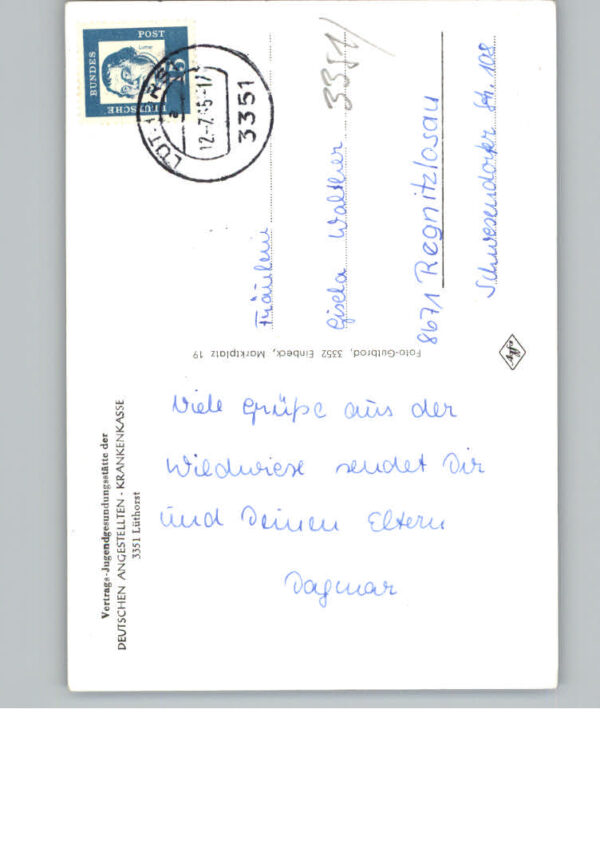 Vertrags-Jugendgesundungsstätte der
DEUTSCHEN ANGESTELLTEN-KRANKENKASSE
3351 Lüthorst
Viele Grüße aus der
Wildwiese sendet Dir
und Deinen Eltern
Dagmar
Foto-Gutbrod, 3352 Einbeck, Marktplatz 19
DEUTSCHE
BUNDES
POST
15
3351
a
3351
Fräulein
Gisela Walther
8671 Regnitzlosau
Schwesendorfer Str. 108
Agfa